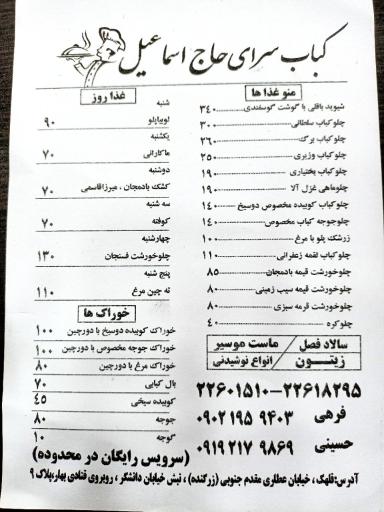 کباب سرای حاج اسماعیل
منو غذا ها
شوید باقلی با گوشت گوسفندی ۳۴۰
چلوکباب سلطانی ۳۰۰
چلوکباب برگ ۲۶۰
چلوکباب وزیری ۲۵۰
چلوکباب بختیاری ۱۹۰
چلوماهی غزل آلا ۱۹۰
چلوکباب کوبیده مخصوص دوسیخ ۱۴۰
چلوجوجه کباب مخصوص ۱۴۰
زرشک پلو با مرغ ۱۰۰
چلوکباب لقمه زعفرانی ۱۱۰
چلوخورشت قیمه بادمجان ۸۵
چلوخورشت قیمه سیب زمینی ۸۰
چلوخورشت قرمه سبزی ۸۰
چلوکره ۴۰
سالاد فصل / ماست موسیر
زیتون / انواع نوشیدنی
غذا روز
شنبه
لوبیاپلو ۹۰
یکشنبه
ماکارانی ۷۰
دوشنبه
کشک بادمجان . میرزاقاسمی ۷۰
سه شنبه
کوفته ۷۰
چهارشنبه
چلوخورشت فسنجان ۱۳۰
پنج شنبه
ته چین مرغ ۱۱۰
خوراک ها
خوراک کوبیده دوسیخ با دورچین ۱۰۰
خوراک جوجه مخصوص با دورچین ۱۰۰
خوراک مرغ با دورچین ۸۰
بال کبابی ۷۰
کوبیده سیخی ۴۵
جوجه ۸۰
گوجه ۱۰
۲۲۶۰۱۵۱۰-۲۲۶۱۸۲۹۵
فرهی ۰۹۰۲ ۱۹۵ ۹۴۰۳
حسینی ۰۹۱۹ ۲۱۷ ۹۸۶۹
(سرویس رایگان در محدوده)
آدرس: قلهک، خیابان عطاری مقدم جنوبی (زرگنده)، نبش خیابان دانشگر، روبروی قنادی بهار، پلاک ۹